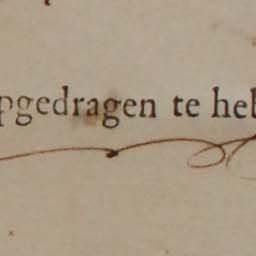 pgedragen te heb